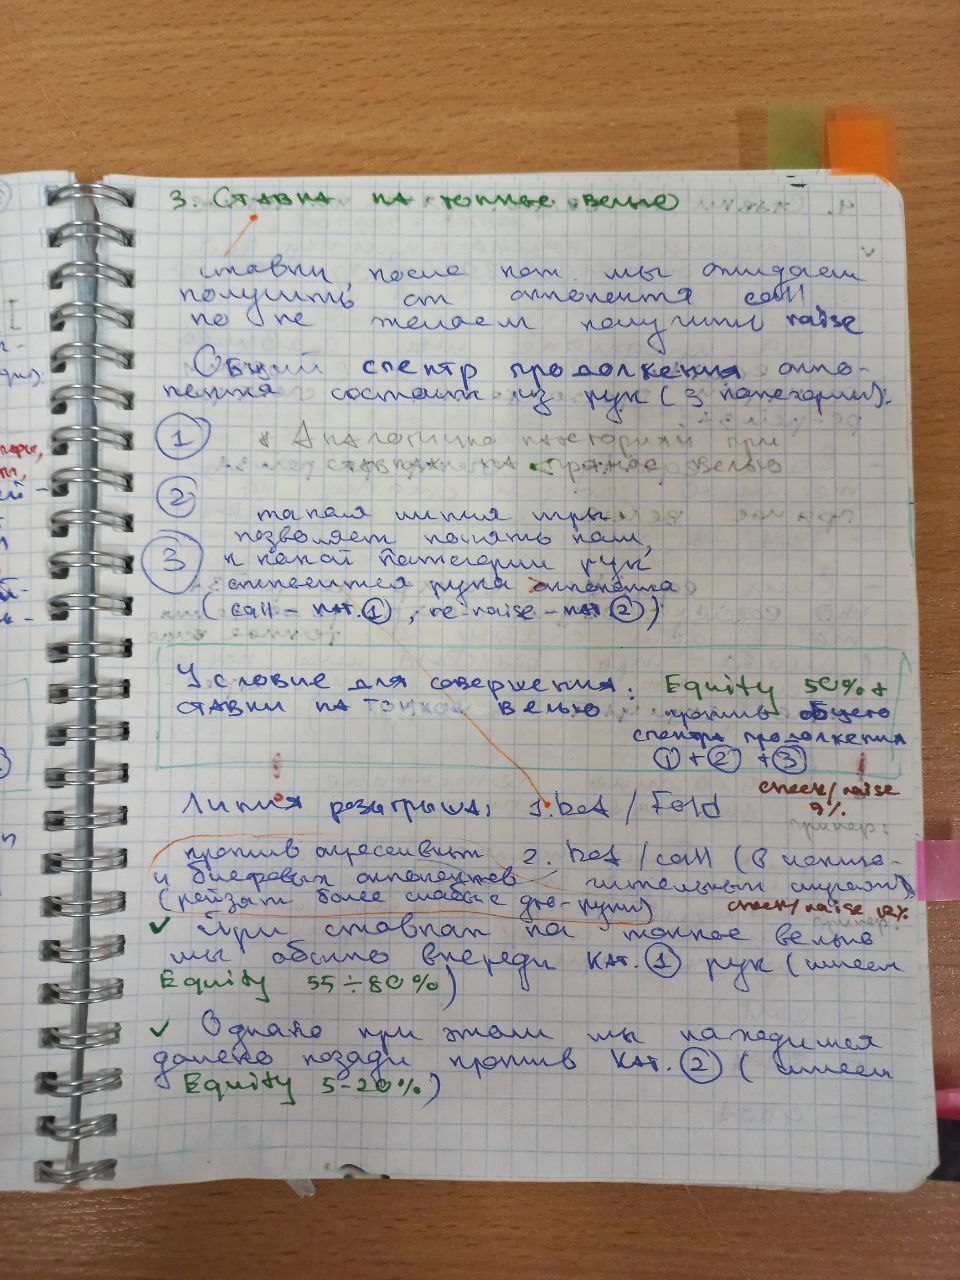 3. Ставка на тонкое велью
ставки, после кот. мы ожидаем
получить от оппонента call,
но не желаем получить raise
Общий спектр продолжения оппо-
нента состоит из рук (3 категории):
1 * Аналогично категориям при
ставках на прямое велью
2
такая линия игры
позволяет понять нам,
3 к какой категории рук
относится рука оппонента
(call – кат. 1, re-raise – кат 2)
Условие для совершения : Equity 50% +
ставки на тонкое велью против общего
спектра продолжения
1 + 2 + 3
Линия розыгрыша: 1. bet / Fold check/raise
9%
против агрессивных 2. bet / call (в исклю-
и блефовых оппонентов чительных случаях)
(рейзят более слабые руки) check/raise 12%
✓ При ставках на тонкое велью
мы обычно впереди кат. 1 рук (имеем
Equity 55 ÷ 80%)
✓ Однако при этом мы находимся
далеко позади против кат. 2 (имеем
Equity 5-20%)